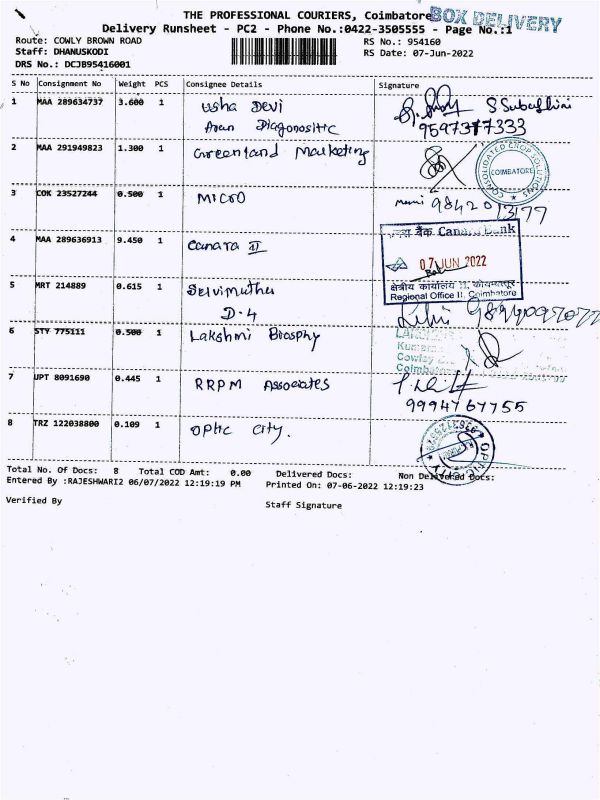 THE PROFESSIONAL COURIERS, Coimbatore
BOX DELIVERY
Delivery Runsheet - PC2 - Phone No.:0422-3505555 - Page No.:1
Route: COWLY BROWN ROAD
RS No.: 954160
Staff: DHANUSKODI
RS Date: 07-Jun-2022
DRS No.: DCJB95416001
S No Consignment No Weight PCS Consignee Details Signature
1 MAA 289634737 3.600 1 Usha Devi S Subashini
Arun Diagonositic 9597377333
2 MAA 291949823 1.300 1 Greenland Marketing
CONSOLIDATED CROP SOLUTIONS
COIMBATORE
3 COK 23527244 0.500 1 MICRO 98420 13177
4 MAA 289636913 9.450 1 Canara II
केनरा बैंक Canara Bank
07 JUN 2022
क्षेत्रीय कार्यालय II, कोयम्बत्तूर
Regional Office II, Coimbatore
5 MRT 214889 0.615 1 Selvimuthu
D-4
6 STY 775111 0.500 1 Lakshmi Brosphy
7 UPT 8091690 0.445 1 RRPM Associates
9994767755
8 TRZ 122038800 0.109 1 Optic City.
OPTIC CITY
Total No. Of Docs: 8 Total COD Amt: 0.00 Delivered Docs: Non Delivered Docs:
Entered By :RAJESHWARI2 06/07/2022 12:19:19 PM Printed On: 07-06-2022 12:19:23
Verified By
Staff Signature